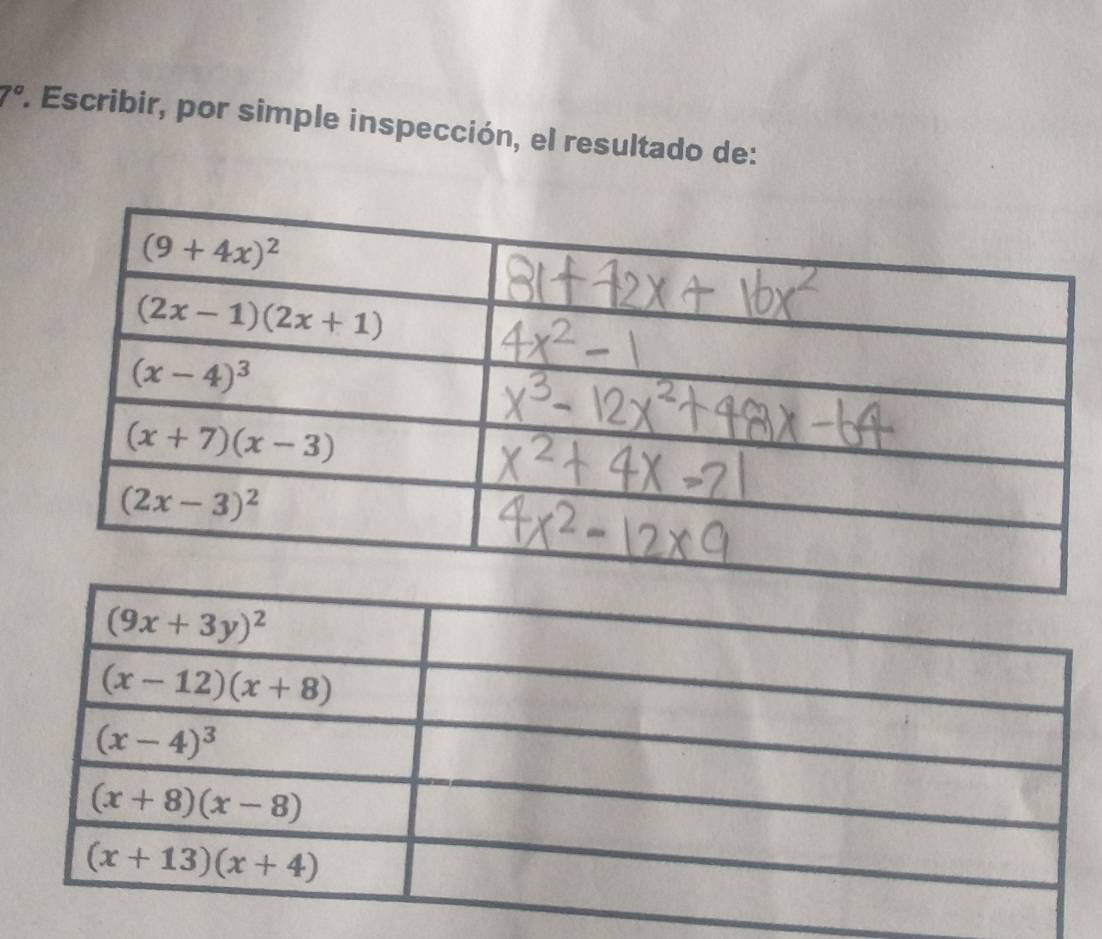 7º. Escribir, por simple inspección, el resultado de:
(9 + 4x)² 81+72x+16x²
(2x − 1)(2x + 1) 4x²-1
(x − 4)³ x³-12x²+48x-64
(x + 7)(x − 3) x²+4x-21
(2x − 3)² 4x²-12x9
(9x + 3y)²
(x − 12)(x + 8)
(x − 4)³
(x + 8)(x − 8)
(x + 13)(x + 4)